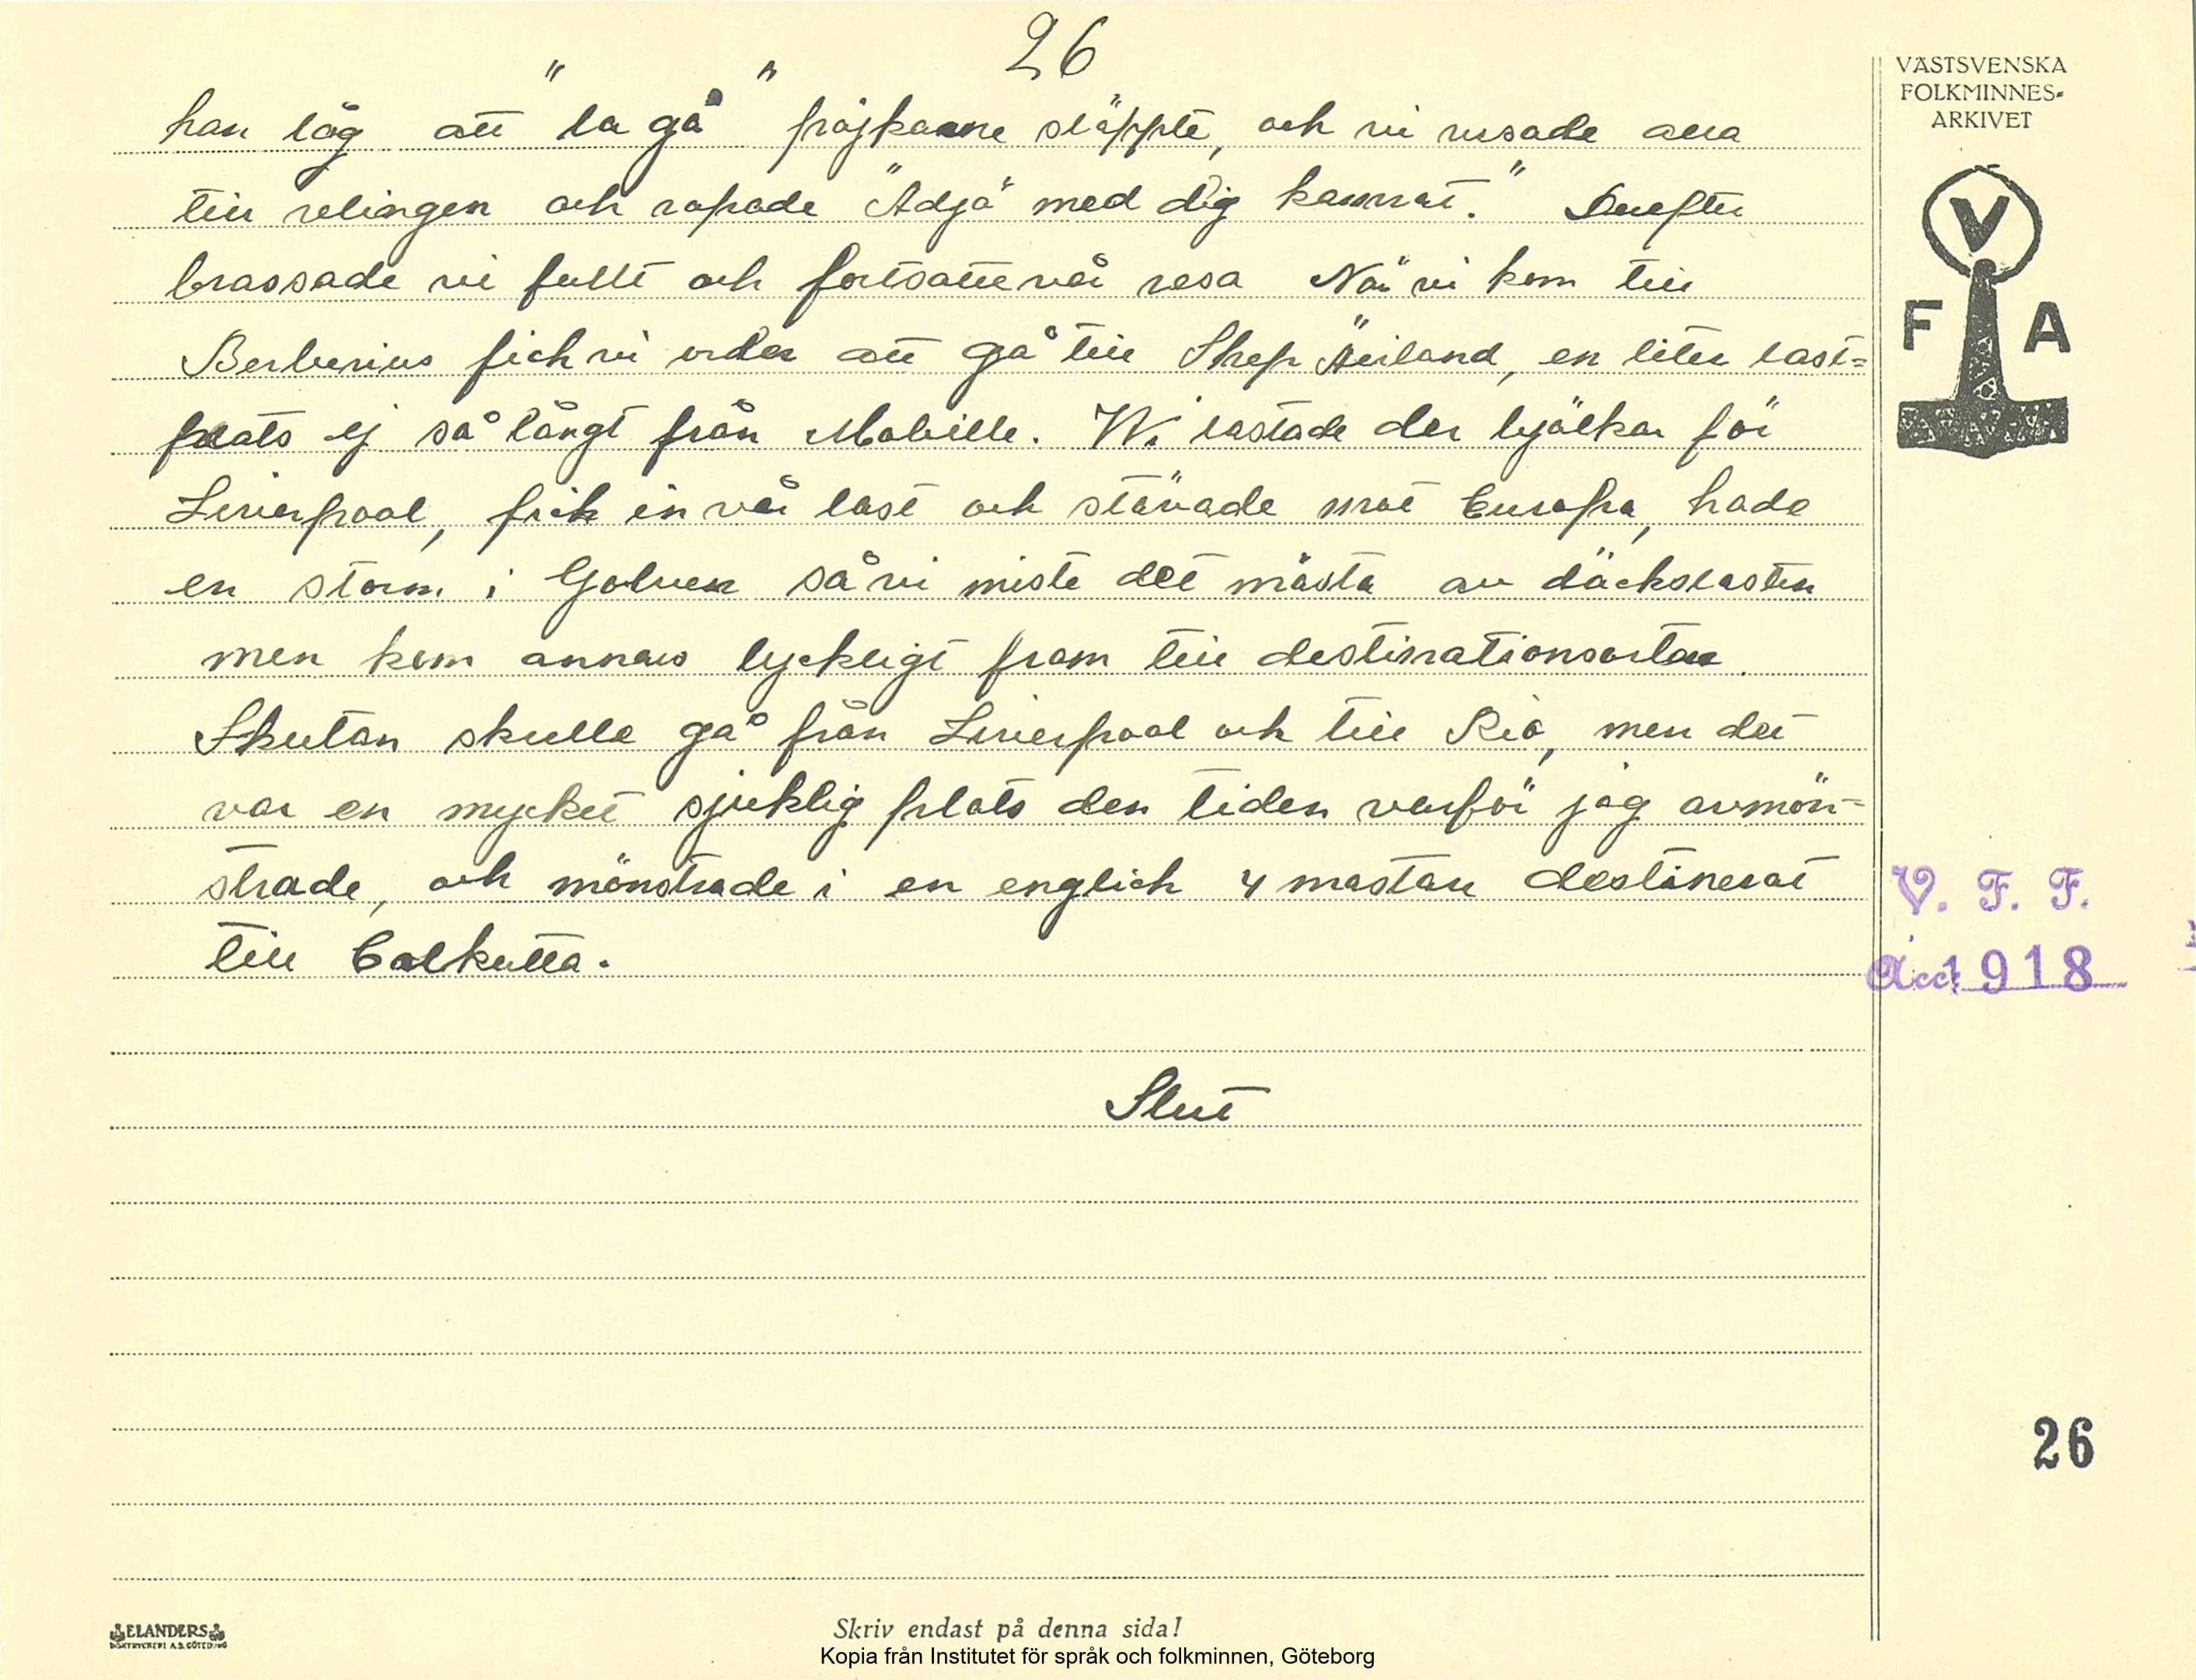 26
VÄSTSVENSKA
FOLKMINNES-
ARKIVET
V
F A
han låg att "la gå" pojkarne släppte, och vi rusade alla
till relingen och ropade "Adjö med dig kamrat." Derefter
brassade vi fullt och fortsatte vår resa När vi kom till
fick vi order att gå till Shep Äiland, en liten last=
plats ej så långt från Mobille. Vi lastade der bjälkar för
Liverpool, fick in vår last och stävade mot Europa, hade
en storm i Golven så vi miste det mästa av däckslasten
men kom annars lyckligt fram till destinationsorten.
Skutan skulle gå från Liverpool och till Rio, men det
var en mycket sjuklig plats den tiden varför jag avmön=
strade, och mönstrade i en englich 4 mastare destinerat
till Calkutta.
V. F. F.
Acc. 1918
Slut
26
ELANDERS
BOKTRYCKERI A.B. GÖTEBORG
Skriv endast på denna sida!
Kopia från Institutet för språk och folkminnen, Göteborg